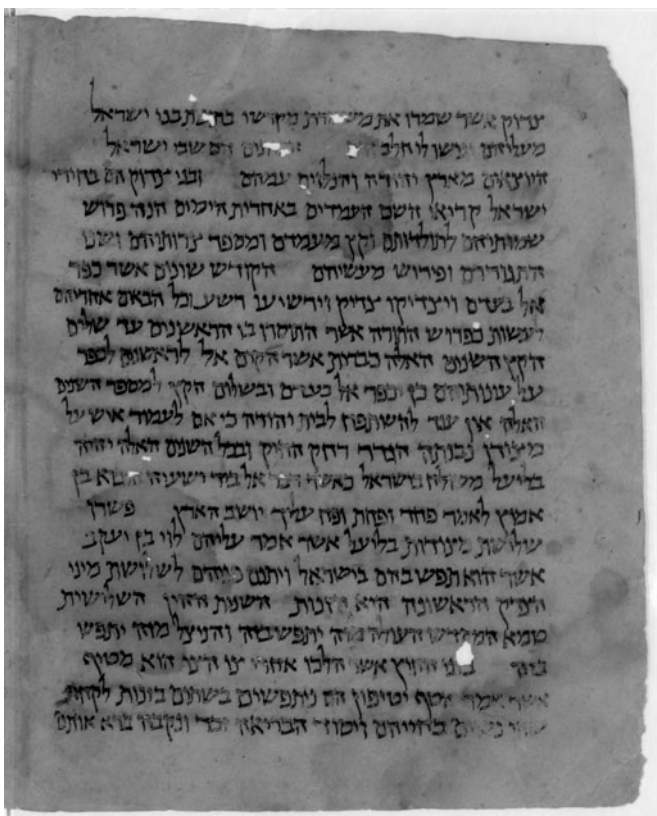 צדוק אשר שמרו את מקדשו בתעות בני ישראל
מעליהם יגישו לי חלב הם שבי ישראל
היוצאים מארץ יהודה והנלוים עמהם ובני צדוק הם בחירי
ישראל קריאי השם העמדים באחרית הימים הנה פרוש
שמותיהם לתולדותם וקץ מעמדם ומספר צרותיהם ושני
התגוררם ופירוש מעשיהם הקודש שונים אשר כפר
אל בעדם ויצדיקו צדיק וירשיעו רשע וכל הבאים אחריהם
לעשות כפרוש התורה אשר התוסרו בו הראשנים עד שלים
הקץ השנים האלה כברית אשר הקים אל לראשנים לכפר
על עונותיהם כן יכפר אל בעדם ובשלום הקץ למספר השנים
האלה אין עוד להשתפח לבית יהודה כי אם לעמוד איש על
מצודו נבנתה הגדר רחק החוק ובכל השנים האלה יהיה
בליעל משולח בישראל כאשר דבר אל ביד ישעיה הנביא בן
אמוץ לאמר פחד ופחת ופח עליך יושב הארץ פשרו
שלושת מצודות בליעל אשר אמר עליהם לוי בן יעקב
אשר הוא תפש בהם בישראל ויתנם פניהם לשלושת מיני
הצדק הראשונה היא הזנות השנית ההין השלישית
טמא המקדש העולה מזה יתפש בזה והניצל מזה יתפש
בזה בוני החוץ אשר הלכו אחרי צו הצו הוא מטיף
אשר אמר הטף יטיפון הם ניתפשים בשתים בזנות לקחת
שתי נשים בחייהם ויסוד הבריאה זכר ונקבה ברא אותם